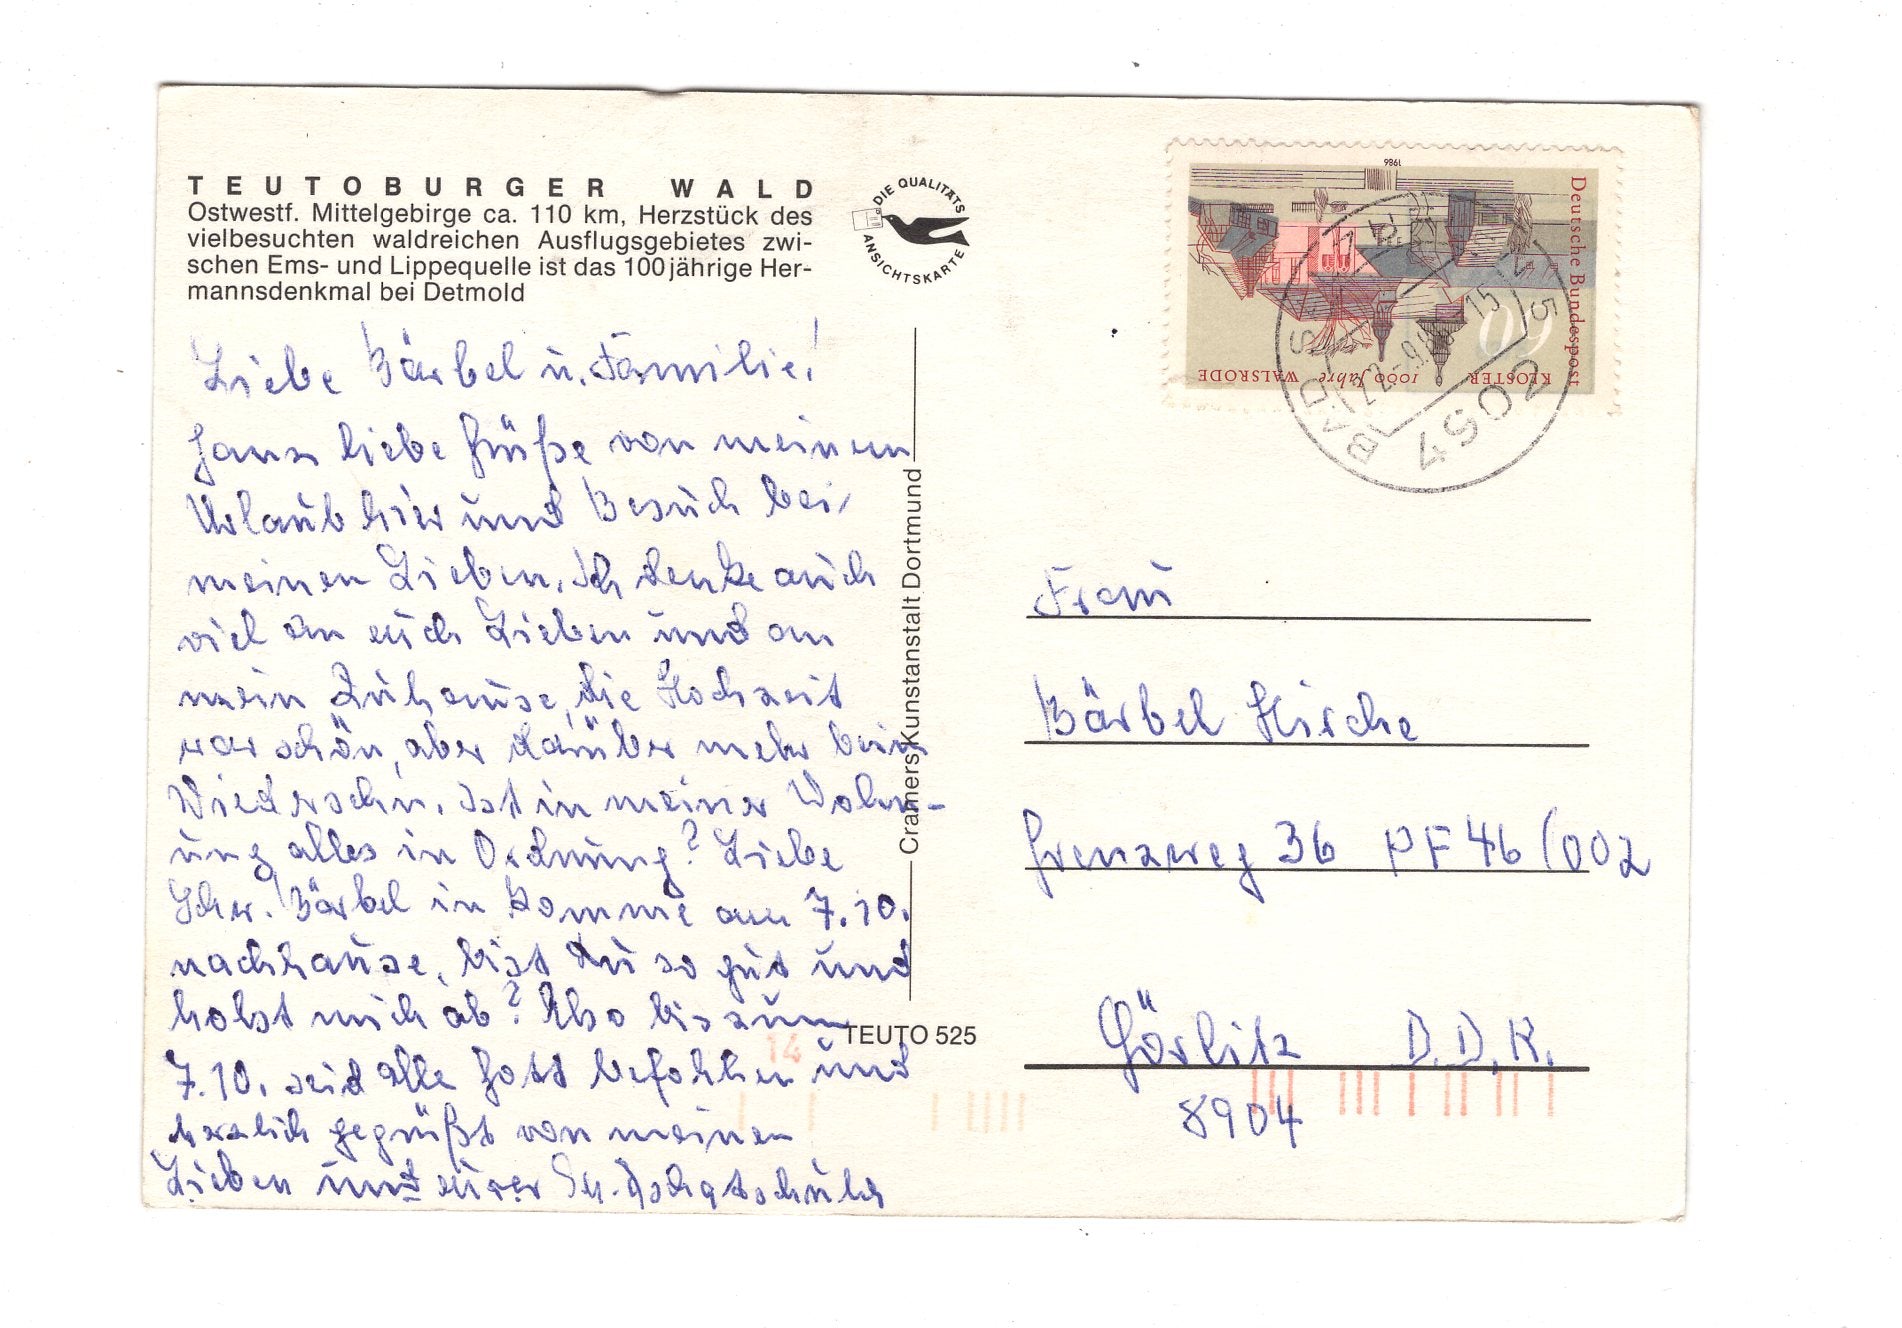 TEUTOBURGER WALD
Ostwestf. Mittelgebirge ca. 110 km, Herzstück des
vielbesuchten waldreichen Ausflugsgebietes zwi-
schen Ems- und Lippequelle ist das 100jährige Her-
mannsdenkmal bei Detmold
DIE QUALITÄTS
ANSICHTSKARTE
Liebe Bärbel u. Familie!
Ganz liebe Grüße von meinem
Urlaub hier und Besuch bei
meinen Lieben. Ich denke auch
viel an euch Lieben und an
mein Zuhause, die Hochzeit
war schön, aber darüber mehr beim
Wiedersehn. Ist in meiner Wohn-
ung alles in Ordnung? Liebe
Schw. Bärbel ich komme am 7.10.
nachhause, bist du so gut und
holst mich ab? Also bis zum
7.10. seid alle Gott befohlen und
herzlich gegrüßt von meinen
Lieben und eurer
Cramers Kunstanstalt Dortmund
TEUTO 525
14
1986
Deutsche Bundespost
60
KLOSTER 1000 Jahre WALSRODE
4502
BAD
22.-9.86 15
Frau
Bärbel Hirche
Grenzweg 36 PF 46/002
Görlitz D.D.R.
8904